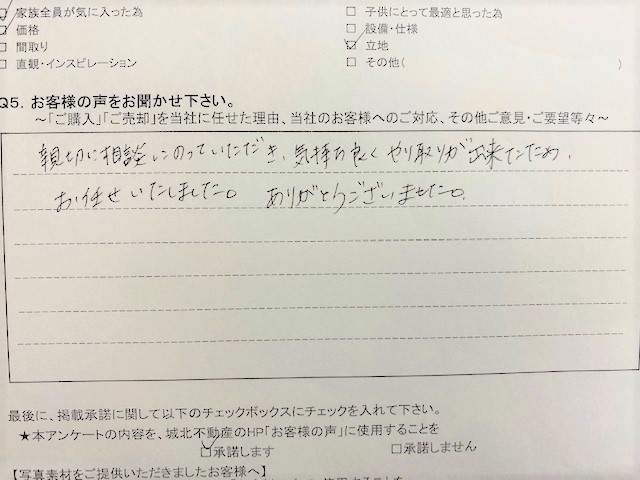 □ 家族全員が気に入った為 □ 子供にとって最適と思った為
☑ 価格 □ 設備・仕様
□ 間取り ☑ 立地
□ 直観・インスピレーション □ その他( )
Q5. お客様の声をお聞かせ下さい。
～「ご購入」「ご売却」を当社に任せた理由、当社のお客様へのご対応、その他ご意見・ご要望等々～
親切に相談にのっていただき、気持ち良くやり取りが出来たため、
お任せいたしました。 ありがとうございました。
最後に、掲載承諾に関して以下のチェックボックスにチェックを入れて下さい。
★本アンケートの内容を、城北不動産のHP「お客様の声」に使用することを
☑承諾します □承諾しません
【写真素材をご提供いただきましたお客様へ】